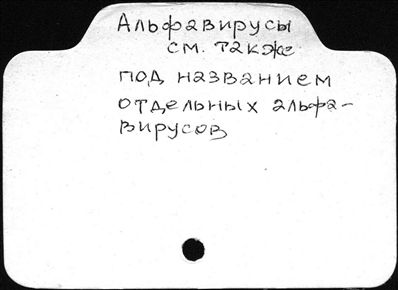 Альфавирусы
см. также
под названием
отдельных альфа-
вирусов